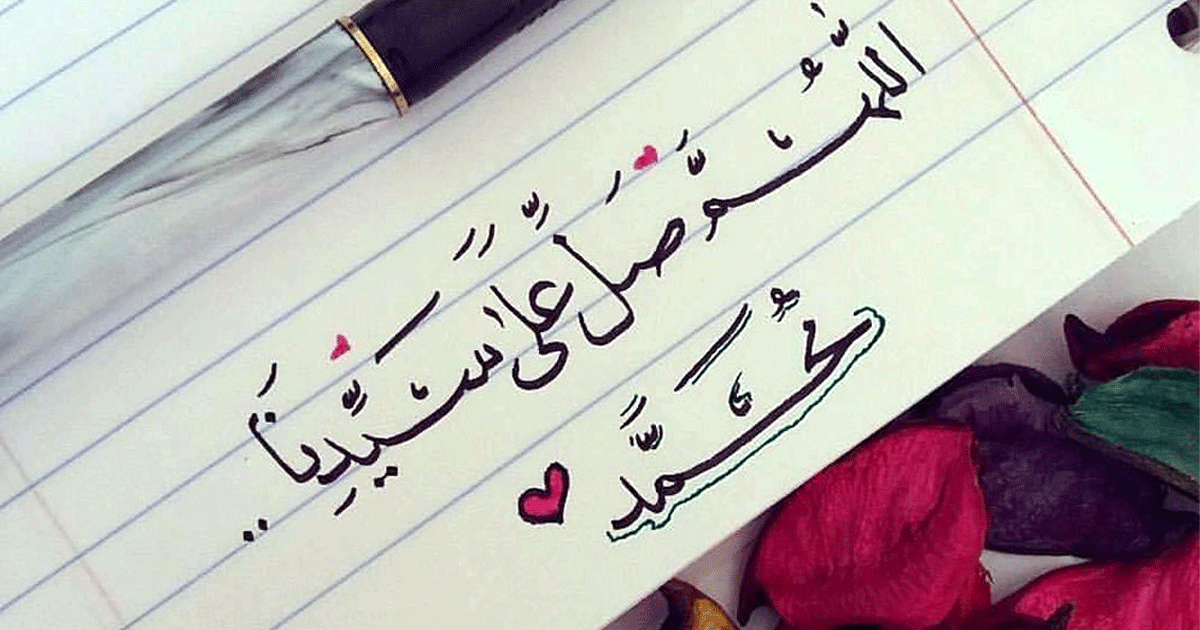 اللَّهُمَّ صَلِّ عَلَىٰ سَيِّدِنَا ..
مُحَمَّد